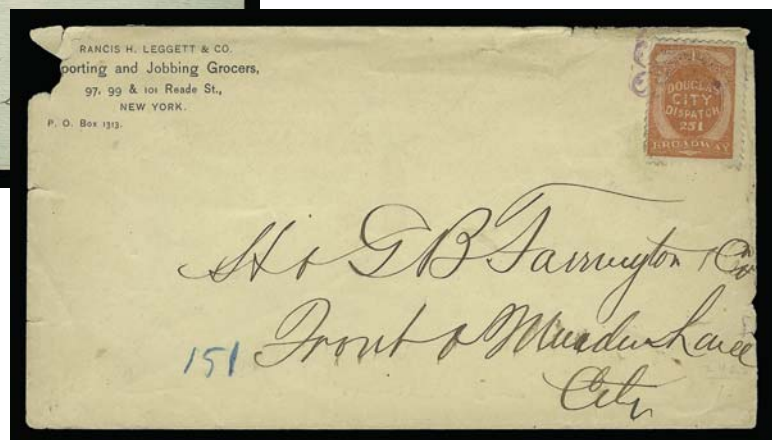 RANCIS H. LEGGETT & CO.
porting and Jobbing Grocers,
97, 99 & 101 Reade St.,
NEW YORK.
P. O. Box 1313.
DOUGLAS
CITY
DISPATCH
251
BROADWAY
H & G B Farrington & Co
151 Front & Maiden Lane
City